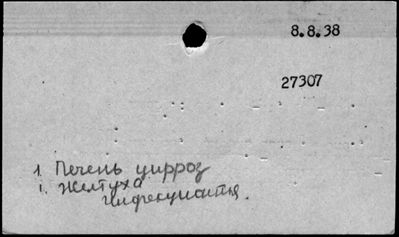 8.8.38
27307
1. Печень цирроз
1. Желтуха